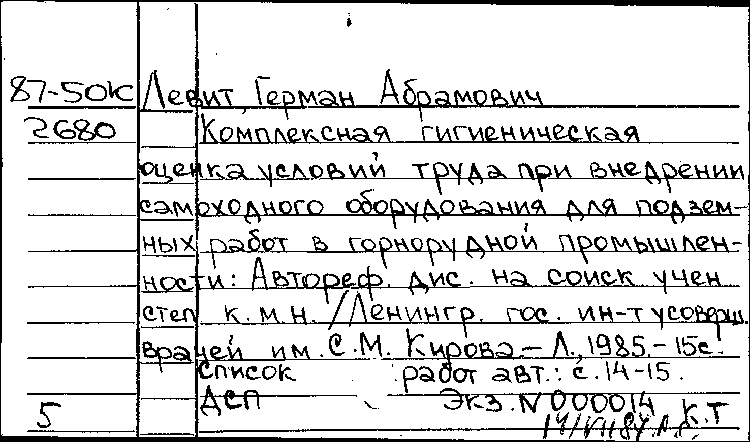 87-50К Левит, Герман Абрамович
2680 Комплексная гигиеническая
оценка условий труда при внедрении
самоходного оборудования для подзем-
ных работ в горнорудной промышлен-
ности: Автореф. дис. на соиск учен
степ к.м.н. / Ленингр. гос. ин-т усоверш.
врачей им. С.М. Кирова.- Л., 1985.- 15с.
список работ авт.: с. 14-15.
ДСП Экз. N 000014 К.Т
5